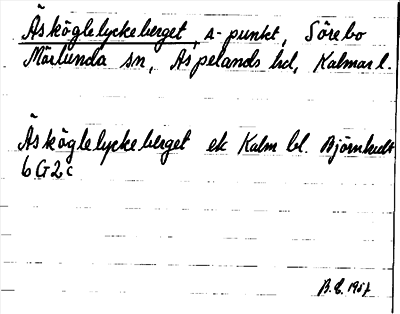 Äsköglelyckeberget, s-punkt, Sörebo
Mörlunda sn, Aspelands hd, Kalmar l.
Äsköglelyckeberget ek Kalm bl. Björnhult
6G2c